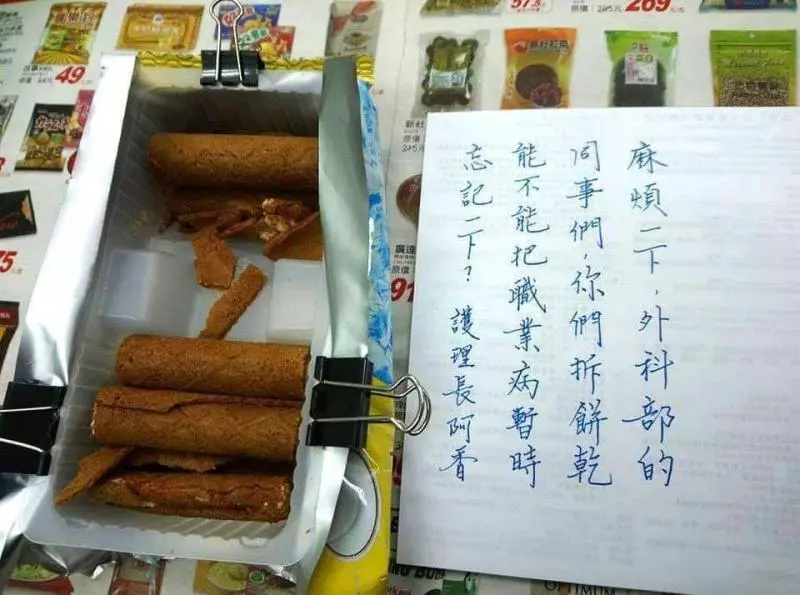 麻煩一下，外科部的
同事們，你們拆餅乾
能不能把職業病暫時
忘記一下？ 護理長阿香
49
269
新社
原價
廣達
原價
91
75
OPTIMUM